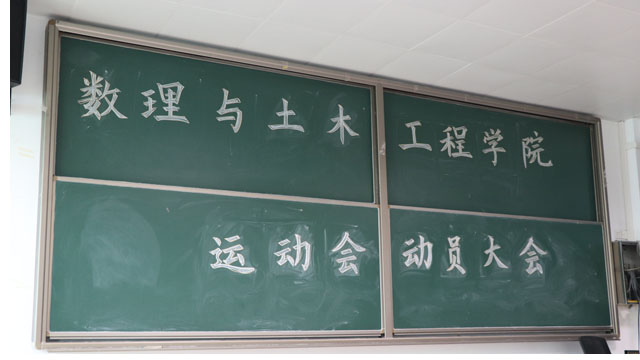 数理与土木工程学院
运动会动员大会